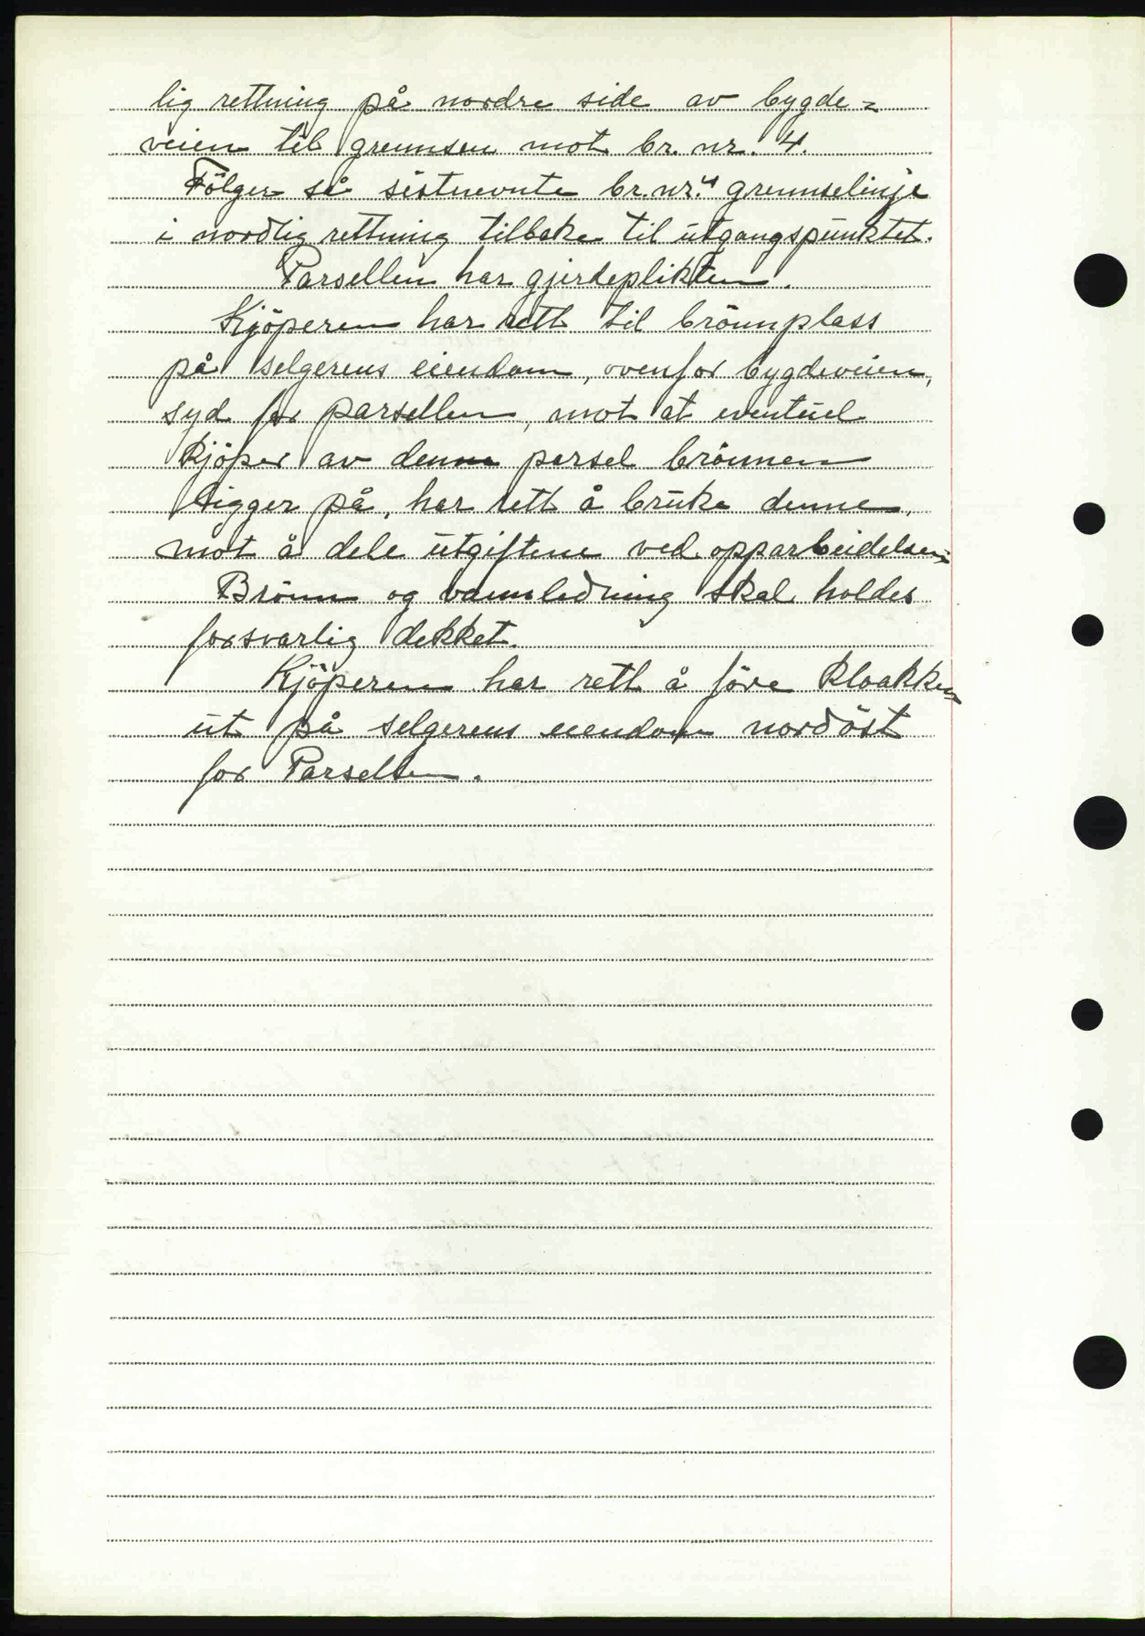 lig rettning på nordre side av bygde=
veien til grennsen mot br. nr. 4.
Følger så sistnevnte br. nr. 4 grennselinje
i nordlig rettning tilbake til utgangspunktet.
Parsellen har gjerdeplikten.
Kjöperen har rett til brönnplass
på selgerens eiendom, ovenfor bygdeveien,
syd for parsellen, mot at eventuel
Kjöper av denne parsel brönnen
ligger på, har rett å bruke denne,
mot å dele utgiftene ved opparbeidelsen.
Brönn og vannledning skal holdes
forsvarlig dekket.
Kjöperen har rett å före kloakken
ut på selgerens eiendom nordöst
for Parsellen.